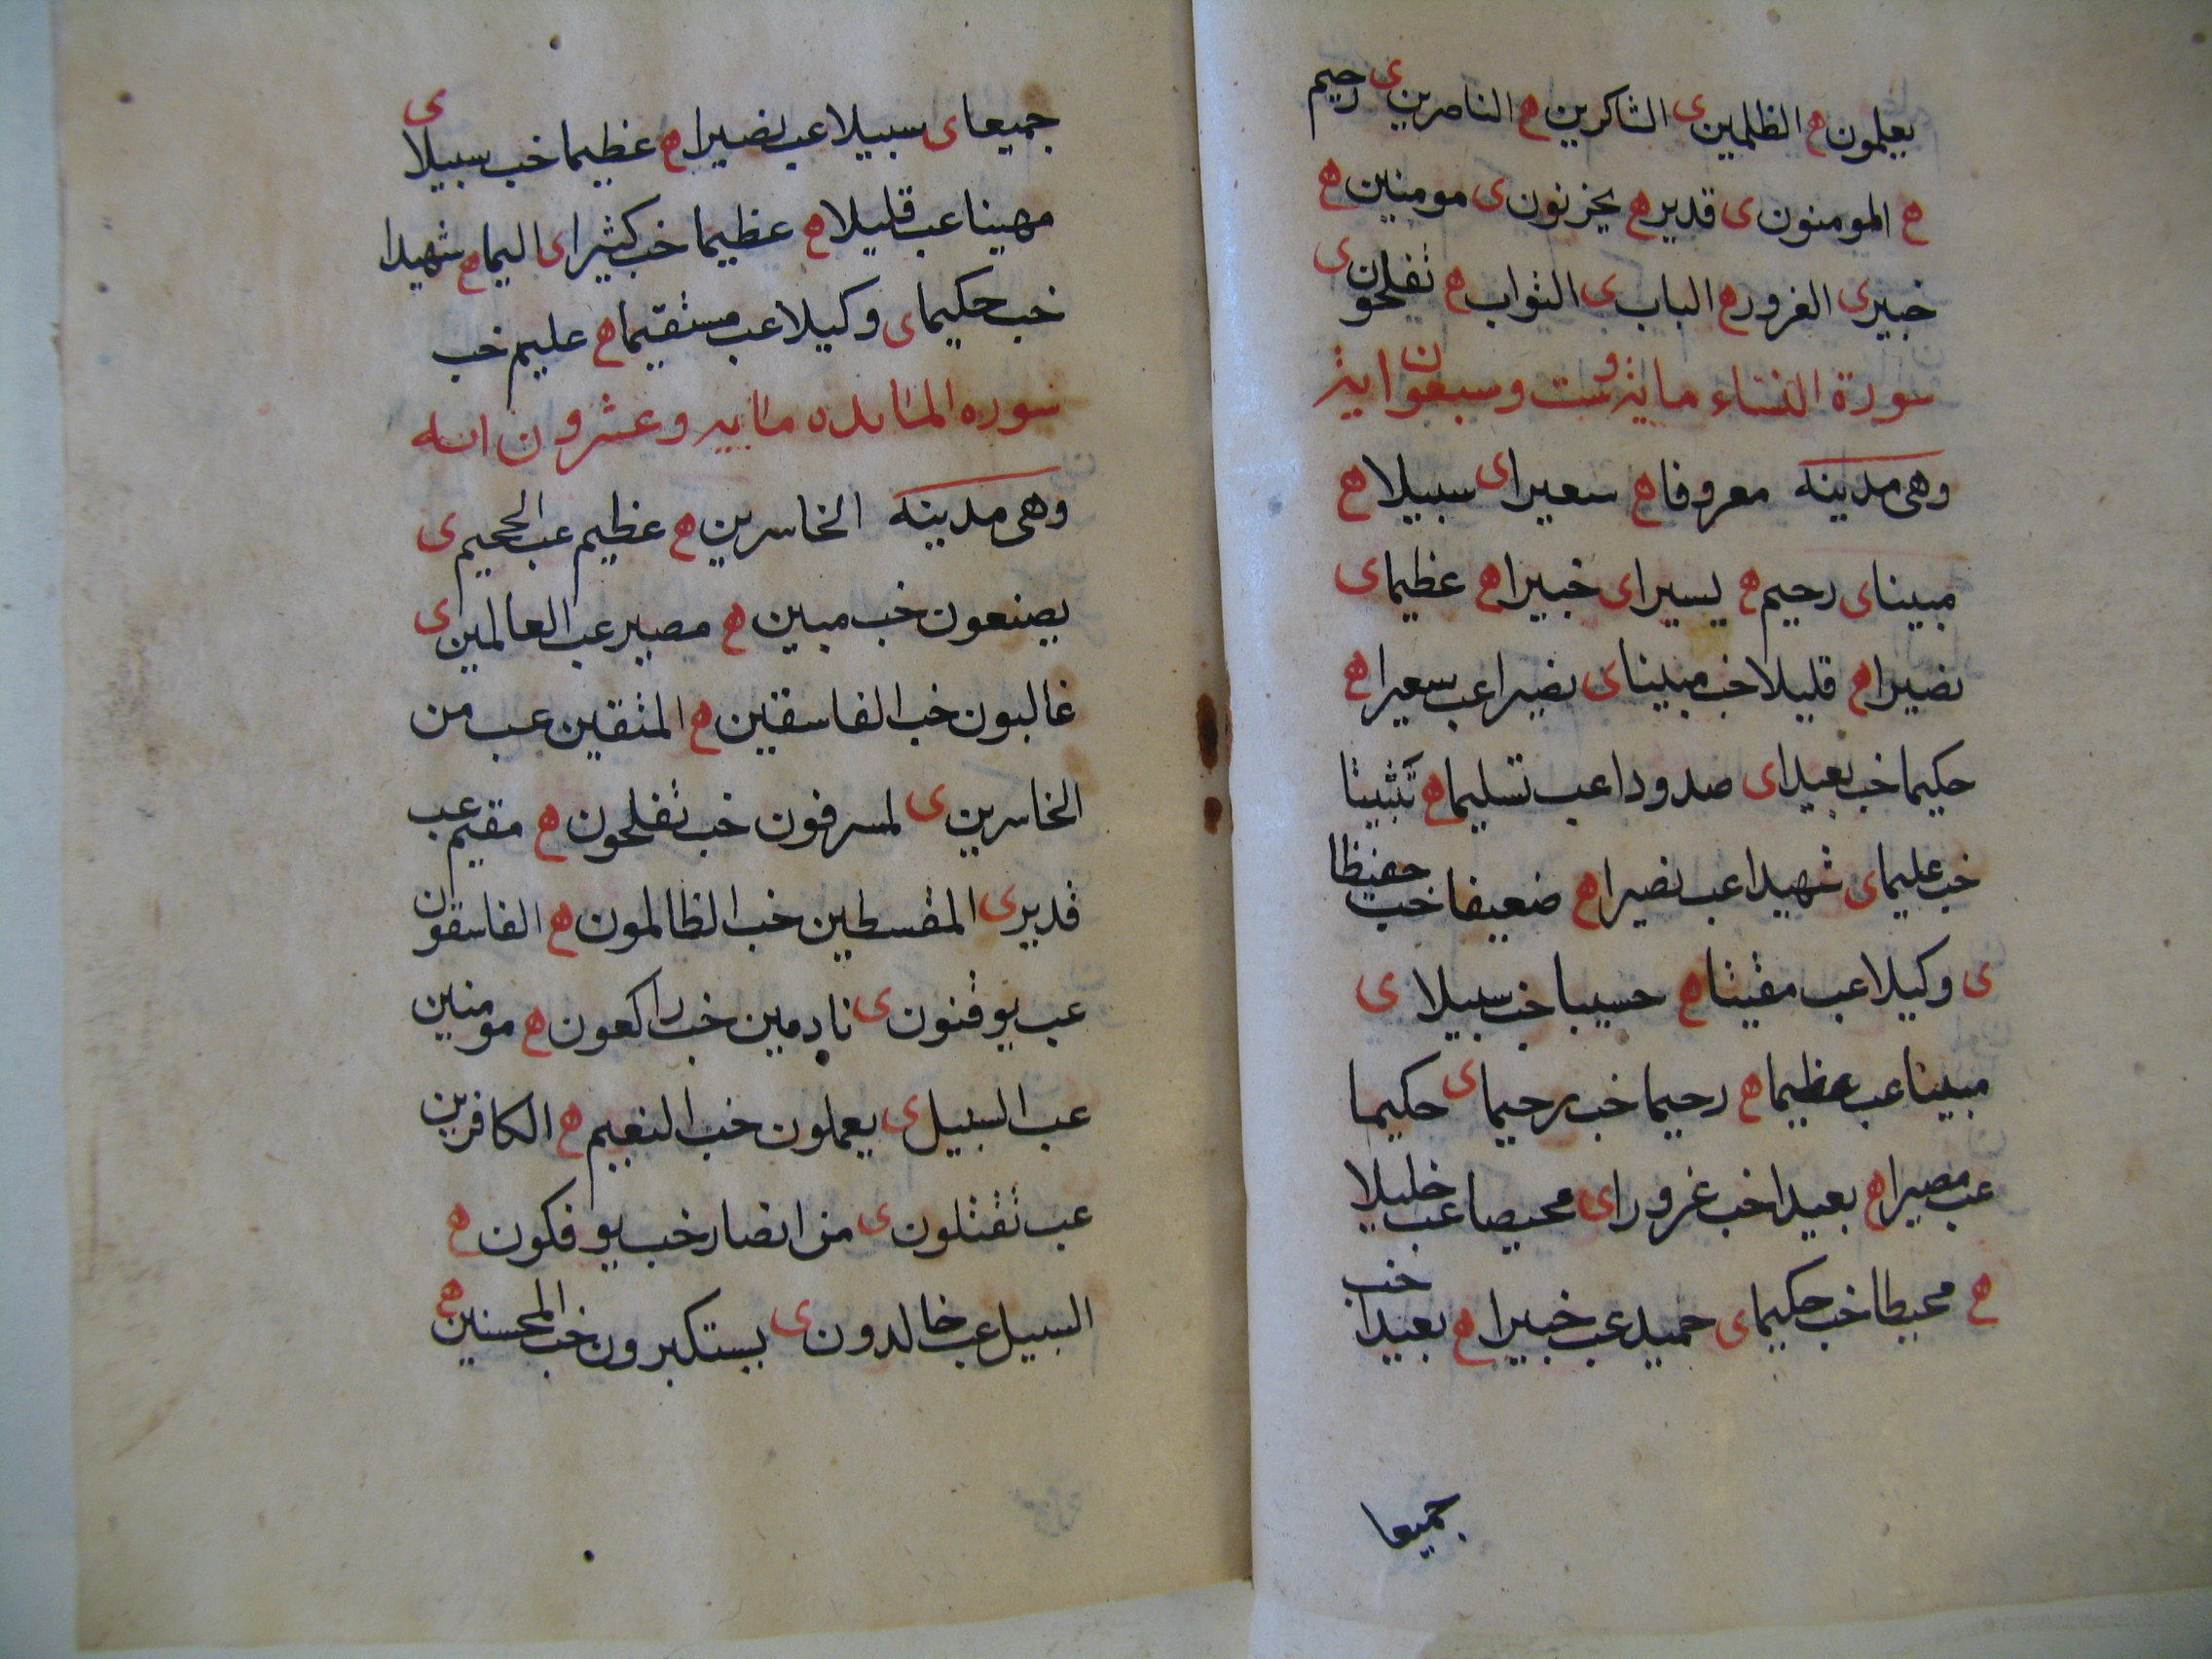 يعلمون ه الظلمين ى الشاكرين ه الناصرين ى رحيم
ه المومنون ى قدير ه يحزنون ى مومنين ه
خبير ى الغرور ه الباب ى الثواب ه تفلحون ى
سورة النساء ماية وست وسبعون اية
وهى مدينه معروفا ه سعيرا ى سبيلا ه
مبينا ى رحيم ه يسيرا ى خبيرا ه عظيما ى
نصيرا ه قليلا خب مبينا ى نصيرا عب سعيرا ه
حكيما خب بعيدا ى صدودا عب تسليما ه تثبيتا
خب عليما ى شهيدا عب نصيرا ه ضعيفا خب حفيظا
ى وكيلا عب مقيتا ه حسيبا خب سبيلا ى
مبينا عب عظيما ه رحيما خب رحيما ى حكيما
عب مصيرا ه بعيدا خب غرورا ى محيصا عب خليلا
ه محيطا خب حكيما ى حميد عب خبيرا ه بعيدا خب
جميعا
جميعا ى سبيلا عب نصيرا ه عظيما خب سبيلا ى
مهينا عب قليلا ه عظيما خب كثيرا ى اليما ه شهيدا
خب حكيما ى وكيلا عب مستقيما ه عليم خب
سوره المائده مايه وعشرون ايه
وهى مدينه الخاسرين ه عظيم عب الجحيم ى
يصنعون خب مبين ه مصير عب العالمين ى
غالبون خب الفاسقين ه المتقين عب من
الخاسرين ى لمسرفون خب تفلحون ه مقيم عب
قدير ى المقسطين خب الظالمون ه الفاسقون
عب يوقنون ى نادمين خب راكعون ه مومنين
عب السبيل ى يعملون خب النعيم ه الكافرين
عب تقتلون ى من انصار خب يوفكون ه
السبيل عب خالدون ى يستكبرون خب المحسنين ه